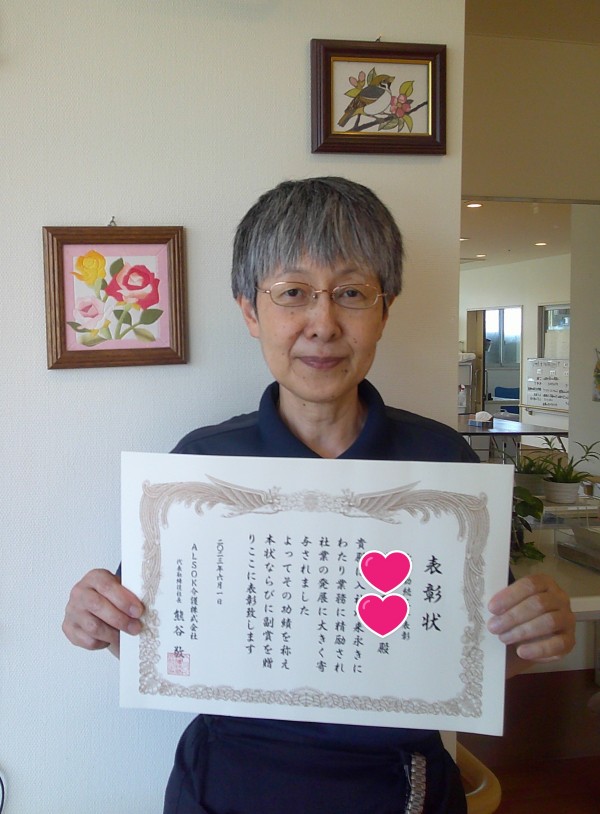 表彰状
勤続
表彰
殿
貴殿は入社以来永きに
わたり業務に精励され
社業の発展に大きく寄
与されました
よってその功績を称え
本状ならびに副賞を贈
りここに表彰致します
二〇二三年六月一日
ALSOK介護株式会社
代表取締役社長 熊谷 敬